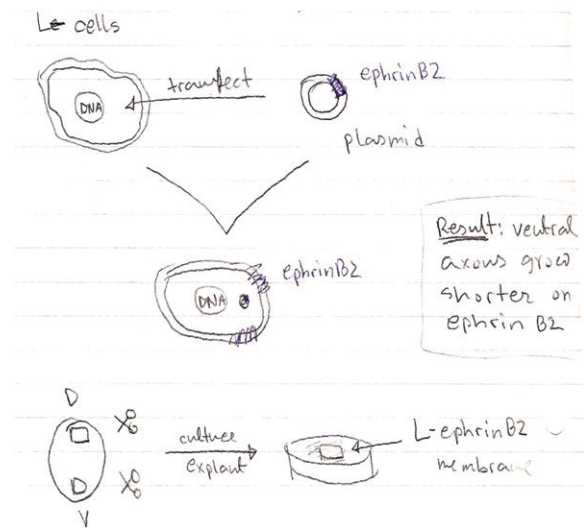 L cells
DNA
transfect
ephrinB2
plasmid
DNA
ephrinB2
Result: ventral
axons grow
shorter on
ephrin B2
D
V
culture
explant
L-ephrinB2
membrane